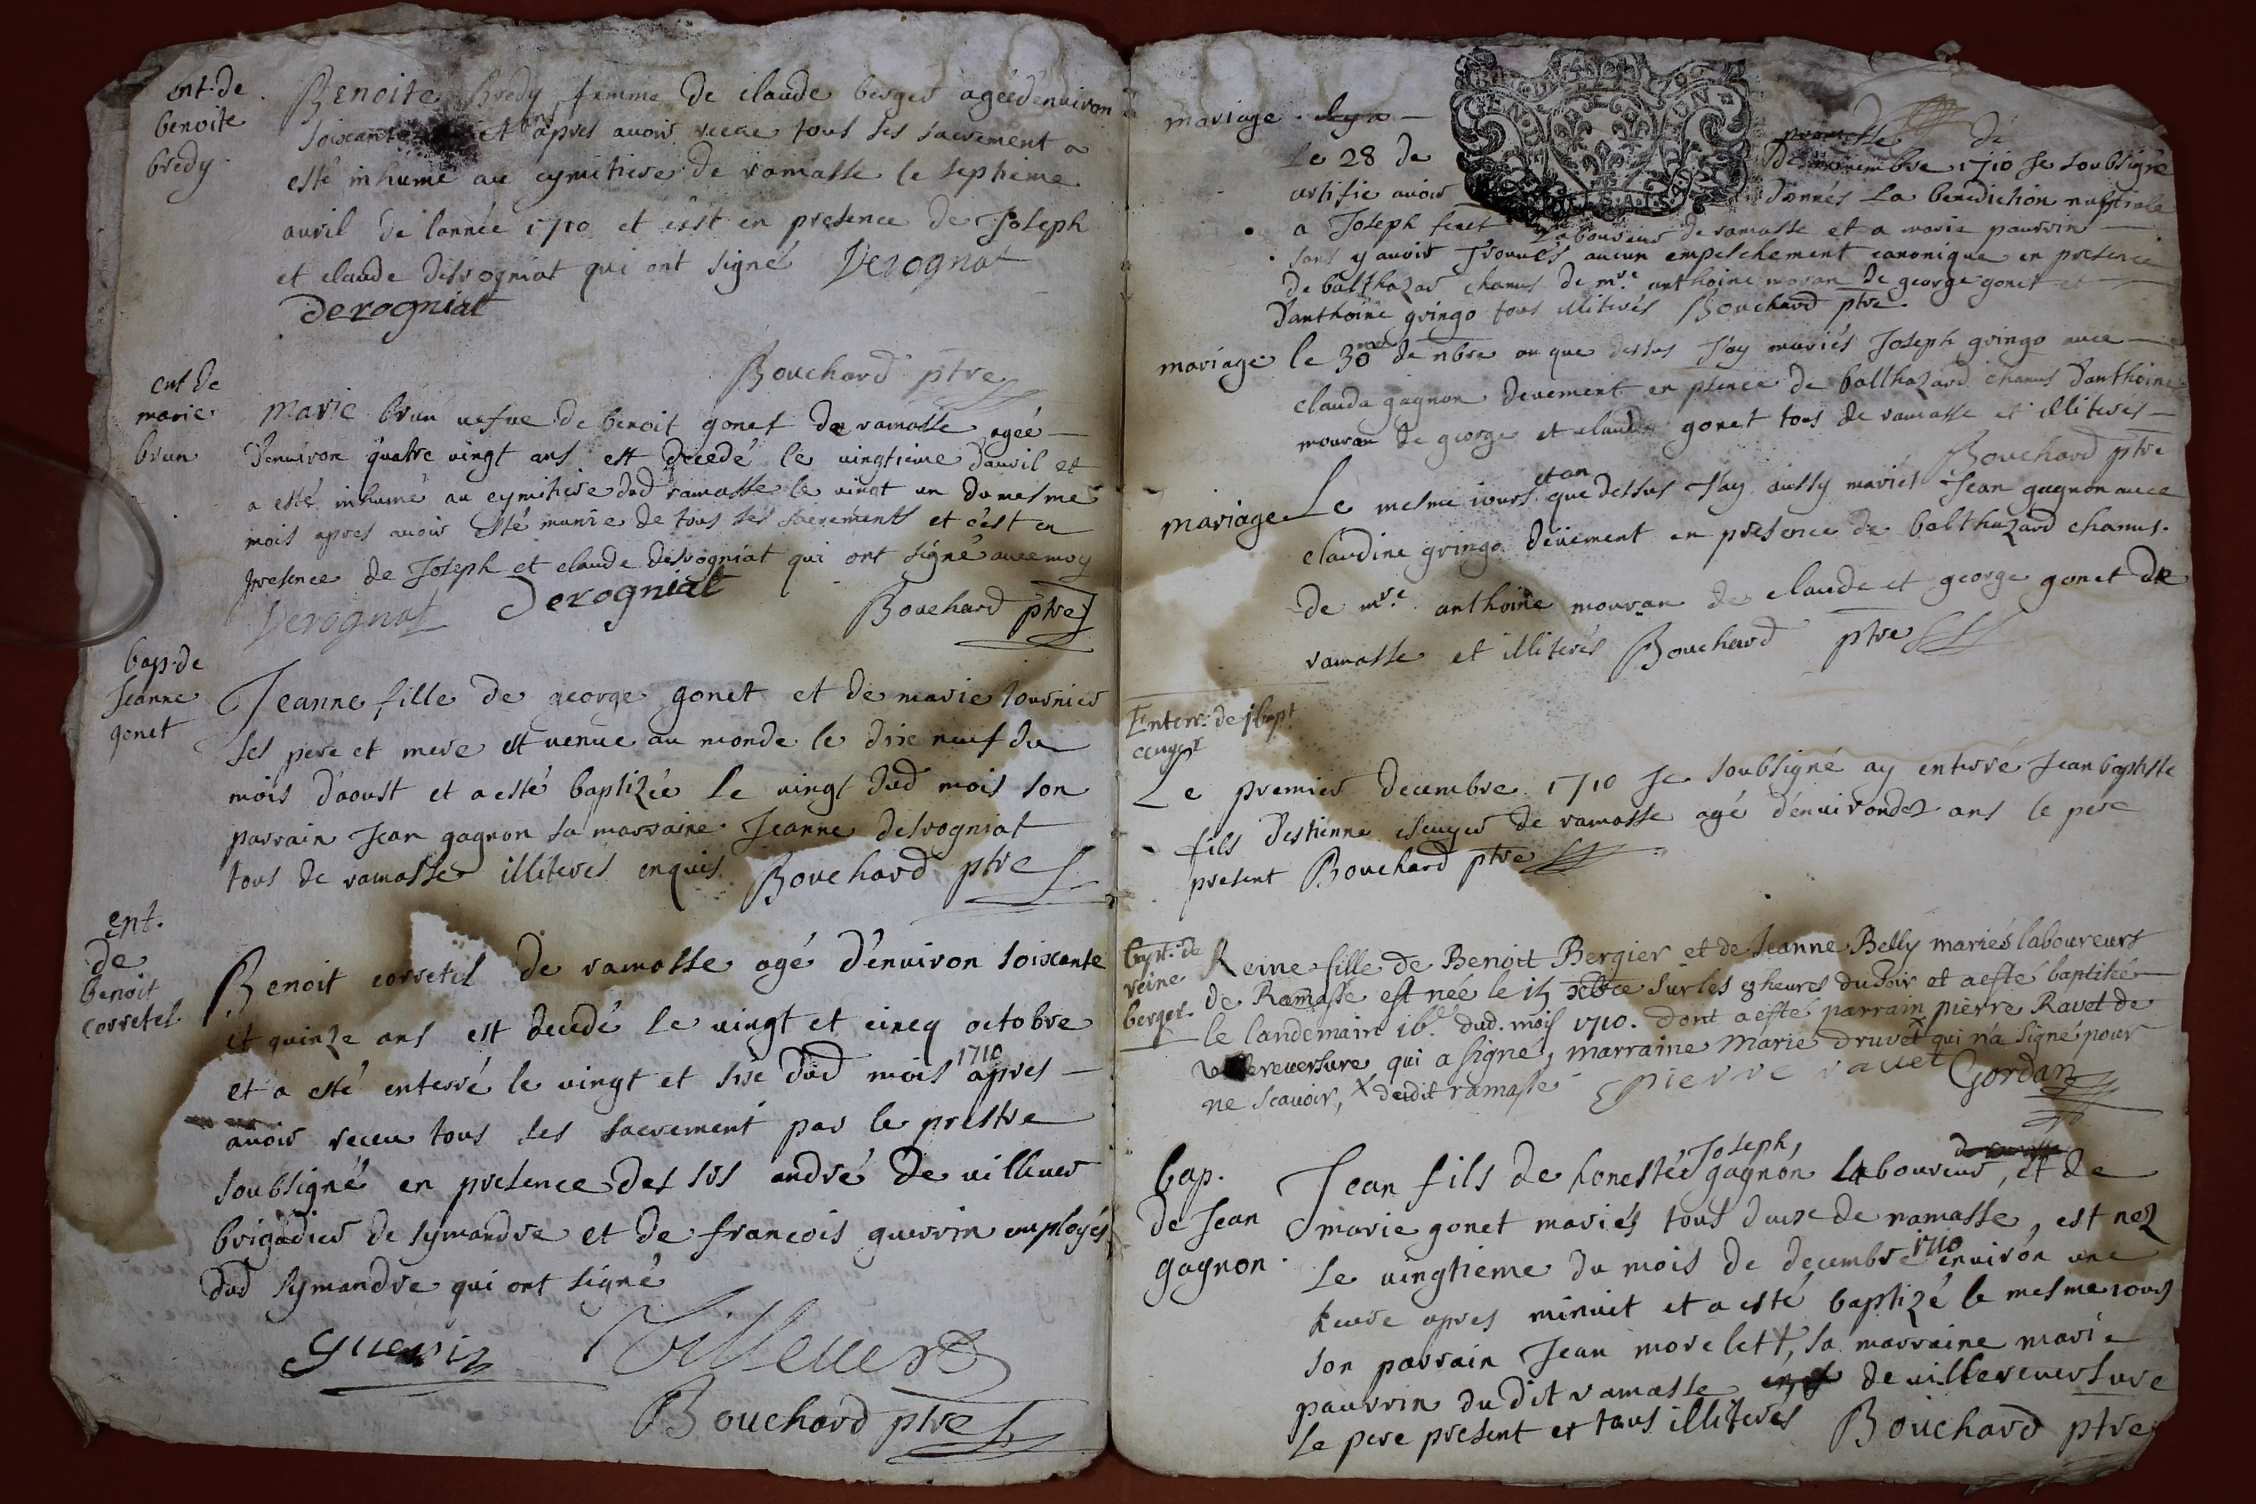 ent. de
benoite
bredy.
Benoite Bredy femme de claude berger ageé d'enuiron
soixante et apres auoir receue tous ses sacrement a
esté inhumé au cymitiere de ramasse le septieme
auril de l'année 1710 et c'est en presence de Joseph
et claude desrogniat qui ont signé Derognat
Derogniat
Bouchard ptre
ent de
marie
brun
Marie brun uefue de benoit gonet de ramasse ageé
d'enuiron quatre uingt ans est decedé le uingtieme d'auril et
a esté inhumé au cymitiere dud ramasse le uingt un du mesme
mois apres auoir esté munie de tous ses sacrements et c'est en
presence de Joseph et claude desrogniat qui ont signé auec moy
Derognat Derogniat Bouchard ptre
bap. de
Jeanne
gonet
Jeanne fille de george gonet et de marie tournier
ses pere et mere est uenue au monde le dix neuf du
mois d'aoust et a esté baptizée le uingt dud mois son
parrain Jean gagnon sa marraine Jeanne desrogniat
tous de ramasse illiterés enquis Bouchard ptre
ent.
de
benoit
corretel
Benoit corretel de ramasse agé d'enuiron soixante
et quinze ans est decedé le uingt et cincq octobre
et a esté enterré le uingt et sixe dud mois 1710 apres
auoir receu tous ses sacrement par le prestre
soubsigné en presence des srs andré de uilleuer
brigadier de symandre et de francois guerrin employés
dud symandre qui ont signé
guerin Villeuerd
Bouchard ptre
mariage
Le 28 de nouembre 1710 Je soubsigné
certifie auoir donnés La benediction nuptiale
a Joseph feret Laboureur de ramasse et a marie paurrin
sans y auoir trouués aucun empeschement canonique en presence
de balthazar chanus de mre. anthoine mouran de george gonet et
d'anthoine gringo tous illiterés Bouchard ptre.
mariage
le 30me de nbre an que dessus J'ay mariés Joseph gringo auec
clauda gagnon deuement en pñce de balthazard chanus d'anthoine
mouran de george et claude gonet tous de ramasse et illiterés
Bouchard ptre
mariage
Le mesme iours et an que dessus J'ay aussy mariés Jean gagnon auec
claudine gringo deüement en presence de balthazard chanus.
de mre. anthoine mouran de claude et george gonet de
ramasse et illiterés Bouchard ptre
Enterr. de J bapt.
Le premier decembre 1710 Je soubsigné ay enterré Jean baptiste
fils d'estienne escuyer de ramasse agé d'enuiron dez ans le pere
present Bouchard ptre
bapt. de
reine
berger.
Reine fille de Benoit Bergier et de Jeanne Belly mariés laboureurs
de Ramasse est neé le 15 xbre sur les 8 heures du soir et a esté baptisée
le landemain 16e dud. mois 1710. dont a esté parrain pierre Ravet de
villereuersure qui a signé, marraine Marie druvet x qui n'a signé pour
ne scauoir, x dudit ramasse pierre rauet Gordan
bap.
de Jean
gagnon.
Jean fils de honestés Joseph gagnon Laboureur, et de
marie gonet mariés tous deux de ramasse, est nez
Le uingtieme du mois de decembre 1710 enuiron une
heure apres minuit et a esté baptizé le mesme iour
son parrain Jean morelett, sa marraine marie
paurrin du dit ramasse de uillereuersure
Le pere present et tous illiterés Bouchard ptre